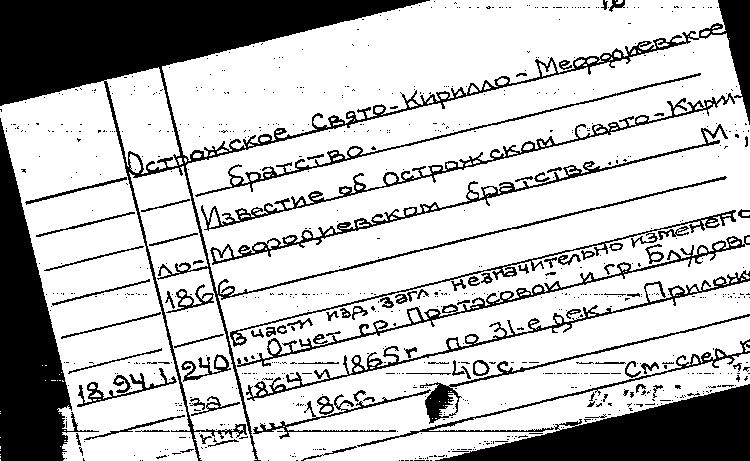 Острожское Свято-Кирилло-Мефодиевское
братство.
Известие об Острожском Свято-Кирил-
ло-Мефодиевском братстве... М.,
1866.
В части изд. загл. незначительно изменено
18.94.1.240 ...„Отчет гр. Протасовой и гр. Блудово
за 1864 и 1865 г. по 31-е дек. Прилож
ния... 1866. 40 с.
См. след. к